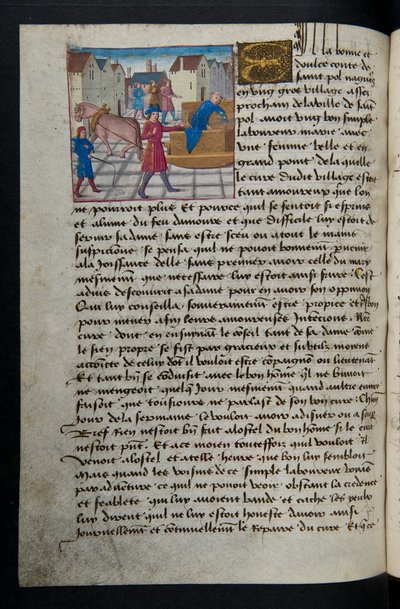 En la bonne et
doulce conte de
saint pol nagu's
en ung gros village assez
prochain de la ville de saint
pol avoit ung bon simple
laboureur marie avec
une femme belle et en
grand point de laquelle
le cure dudit village estoit
tant amoureux que l'on
ne pourroit plus Et pource quil se sentoit si esprins
et alume du feu damours et que difficile luy estoit de
servir sa dame sans estre sceu ou atout le mains
suspicionne se pensa quil ne pouoit bonnement parvenir
ala joissance delle sans premier avoir celle du mary
mesmement que necessaire luy estoit ainsi faire Cest
advis descouvrit a sadame pour en avoir son oppinion
Qui luy conseilla souverainement estre propice et bon
pour mener a fin leurs amoureuses intencions Nre
cure dont en ensuivant le conseil tant de sa dame come
le sien propre se fist par gracieux et subtilz moyens
accointe de celuy dont il vouloit estre compaignon ou lieutenant
Et tant bn se conduisit avec le bon home quil ne buvoit
ne mengeoit quelque Jour mesmement quand aultre euvre
faisoit que tousiours ne parlast de son bon cure Chun
Jour de la sepmaine le vouloit avoir a disner ou a soup
Bref rien nestoit bn fait alostel du bon home si le cure
nestoit pnt. Et a ce moien touteffoiz quil vouloit il
venoit alostel et atelle heure que bon luy sembloit
Mais quand les voisins de ce simple laboureur voians
par adventure ce quil ne pouoit veoir obstant la credence
et feablete qui luy avoient bande et cache les yeulx
luy dirent quil ne luy estoit honeste davoir ainsi
Journellement et continuellement le repaire du cure Et que